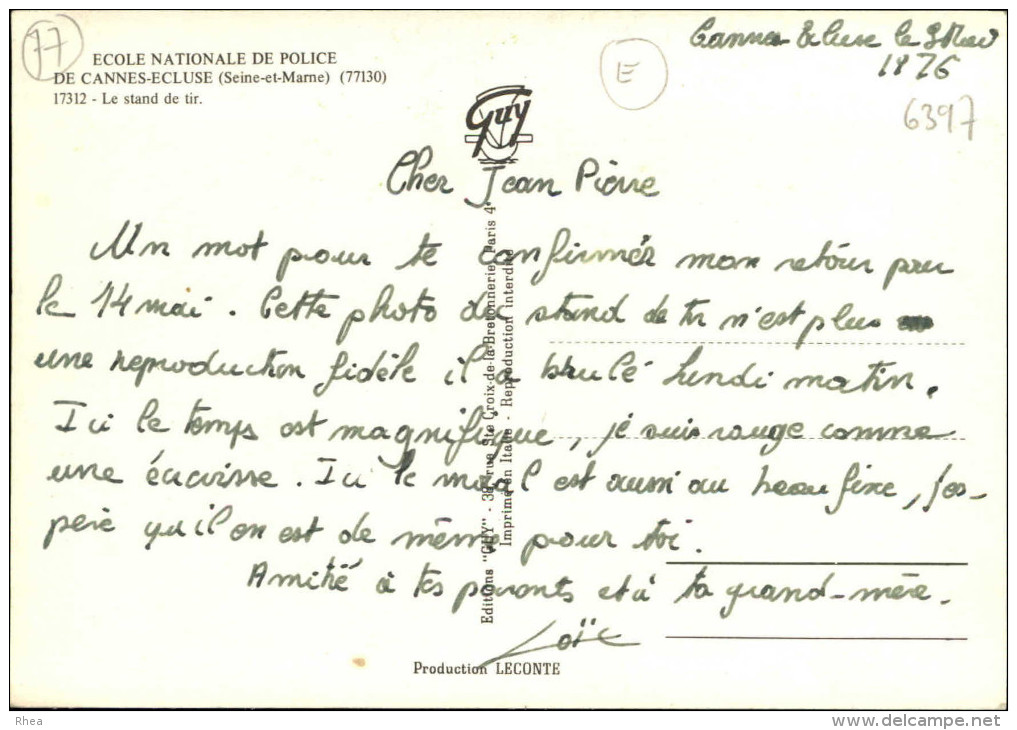 77
ECOLE NATIONALE DE POLICE
DE CANNES-ECLUSE (Seine-et-Marne) (77130)
17312 - Le stand de tir.
Cannes Ecluse le 9 Mai
1876
E
6397
Guy
Cher Jean Pierre
Un mot pour te confirmér mon retour pour
le 14 mai. Cette photo du stand de tir n'est plus
une reproduction fidèle il a brulé lundi matin.
Ici le temps est magnifique, je suis rouge comme
une écrevisse. Ici le moral est aussi au beau fixe, j'es-
père qu'il en est de même pour toi.
Amitié à tes parents et à ta grand-mère.
Loïc
Editions "GUY" - rue Ste Croix-de-la-Bretonnerie, Paris 4e
Imprimé en Italie - Reproduction interdite
Production LECONTE
Rhea
www.delcampe.net